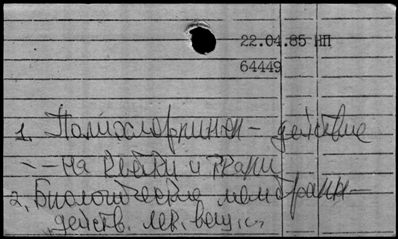 22.04.85 НП
64449
1. Полиэлектролиты – действие
-- на клетки и ткани
2. Биологические мембраны –
действ. лек. вещ.